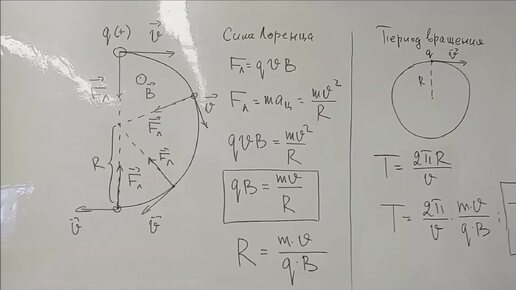 q(+)
v⃗
F⃗л
B⃗
v⃗
F⃗л
R
F⃗л
F⃗л
v⃗
v⃗
Сила Лоренца
Fл = qvB
Fл = maц = mv²/R
qvB = mv²/R
qB = mv/R
R = m·v/q·B
Период вращения
q
v⃗
R
T = 2πR/v
T = 2π/v · m·v/q·B ;